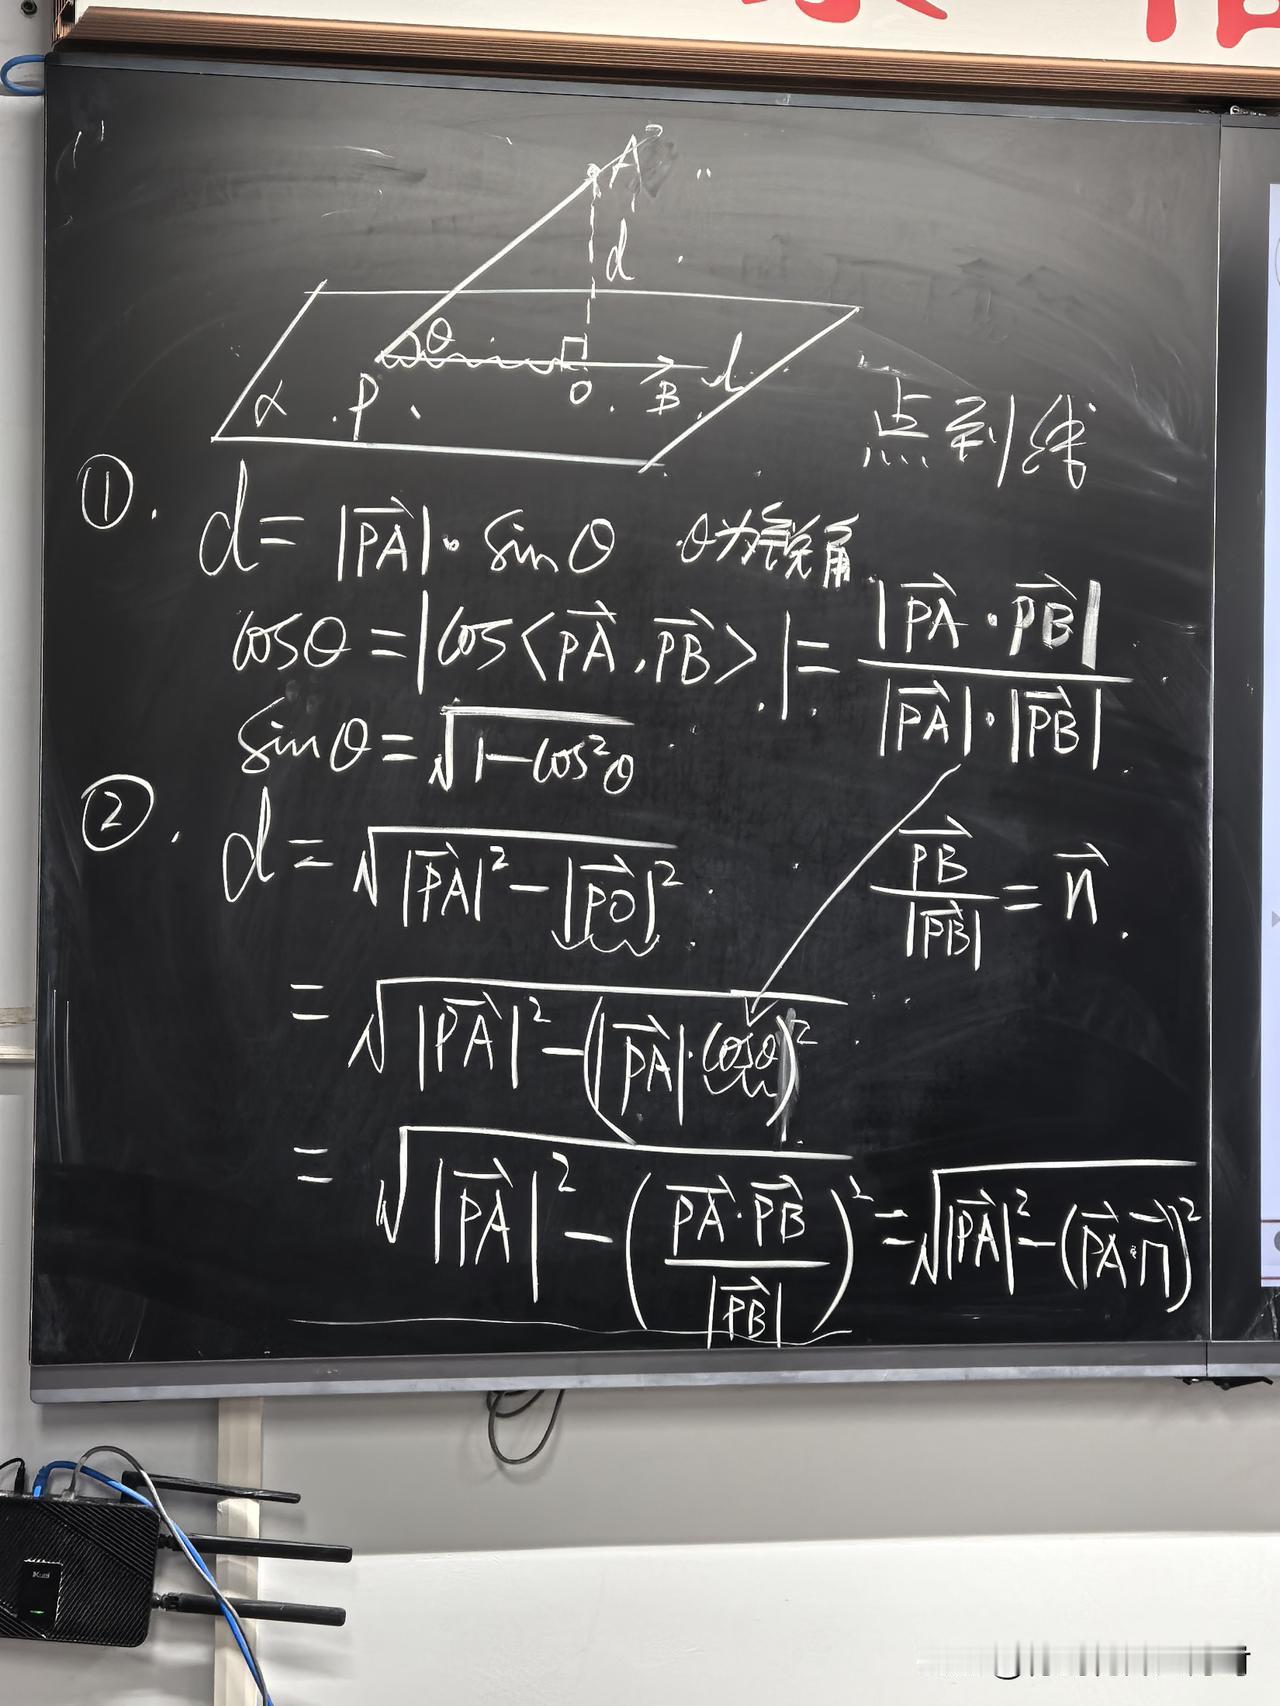 A
d
θ
α P O B l
点到线
① d = |\overrightarrow{PA}| · sin θ θ为锐角
cosθ = |cos<\overrightarrow{PA}, \overrightarrow{PB}>| = \frac{|\overrightarrow{PA} · \overrightarrow{PB}|}{|\overrightarrow{PA}| · |\overrightarrow{PB}|}
sinθ = \sqrt{1-cos²θ}
② d = \sqrt{|\overrightarrow{PA}|² - |\overrightarrow{PO}|²}
\frac{\overrightarrow{PB}}{|\overrightarrow{PB}|} = \vec{n}
= \sqrt{|\overrightarrow{PA}|² - (|\overrightarrow{PA}| · cosθ)²}
= \sqrt{|\overrightarrow{PA}|² - (\frac{\overrightarrow{PA} · \overrightarrow{PB}}{|\overrightarrow{PB}|})²} = \sqrt{|\overrightarrow{PA}|² - (\overrightarrow{PA} · \vec{n})²}